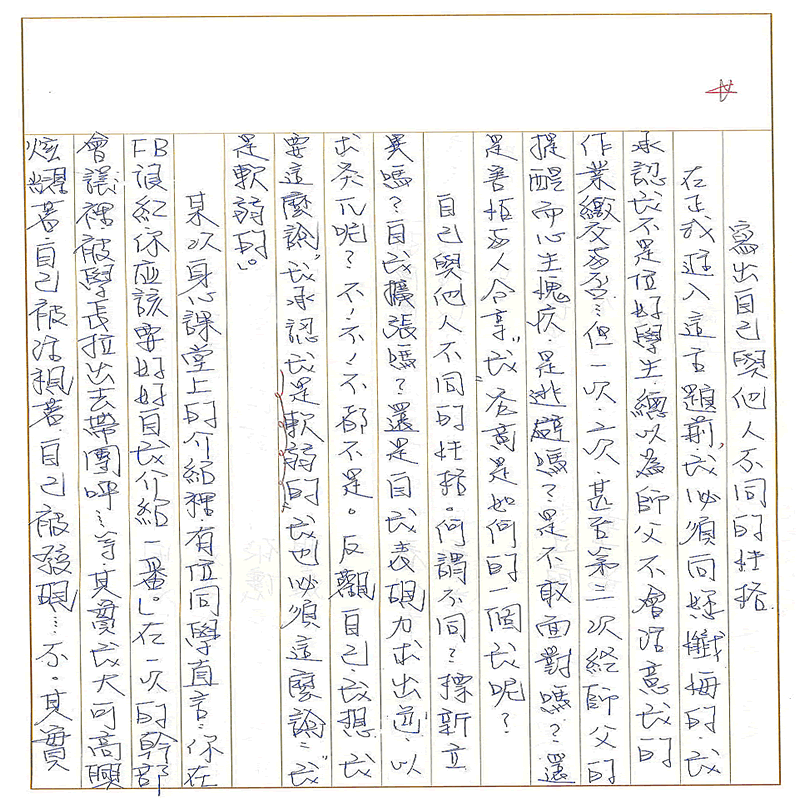 寫出自己與他人不同的性格
在正式進入這言題前，我必須向懺悔的我
承認我不是位好學生，總以為師父不會注意我的
作業繳交與否…但一次、二次甚至第三次經師父的
提醒而心生愧疚，是逃避嗎？是不敢面對嗎？還
是害怕與人分享"我"究竟是如何的一個我呢？
自己與他人不同的性格。何謂不同？標新立
異嗎？自我擴張嗎？還是自我表現力求出逆，以
求亮爪呢？不！不！不都不是。反觀自己，我想我
要這麼說"我承認我是軟弱的"我也必須這麼說：我"
是軟弱的。
某次身心課堂上的介紹裡，有位同學直言：你在
FB很紅，你應該要好好自我介紹一番。」在一次的幹部
會議裡被學長拉出去帶團呼…等，其實我大可高興
炫耀著自己被注視著，自己被發現…不。其實